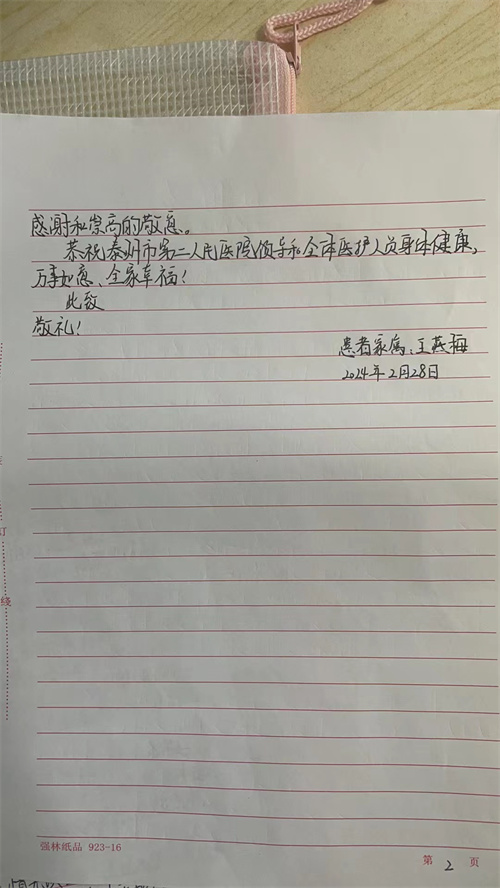 感谢和崇高的敬意。
恭祝泰州市第二人民医院领导和全体医护人员身体健康，
万事如意、全家幸福！
此致
敬礼！
患者家属：王燕梅
2024年2月28日
订
线
强林纸品 923-16
第 2 页